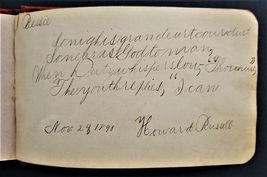 Bessie
So nigh is grandeur to our dust
So near is God to man,
When Duty whispers low, "Thou must,"
The youth replies, "I can
Nov 29 1890 Howard Russell